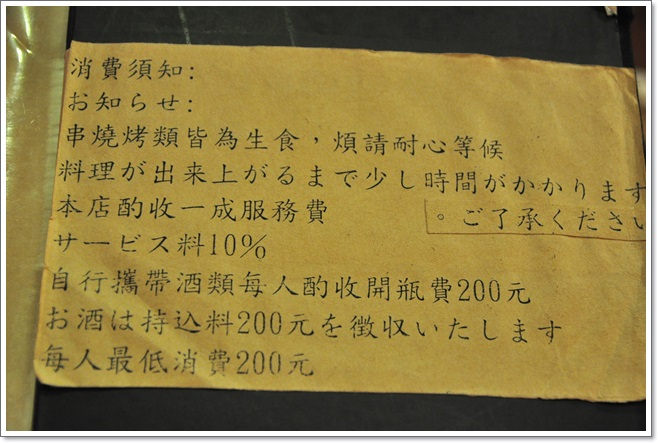 消費須知:
お知らせ:
串燒烤類皆為生食，煩請耐心等候
料理が出来上がるまで少し時間がかかります
。ご了承ください
本店酌收一成服務費
サービス料10%
自行攜帶酒類每人酌收開瓶費200元
お酒は持込料200元を徴収いたします
每人最低消費200元